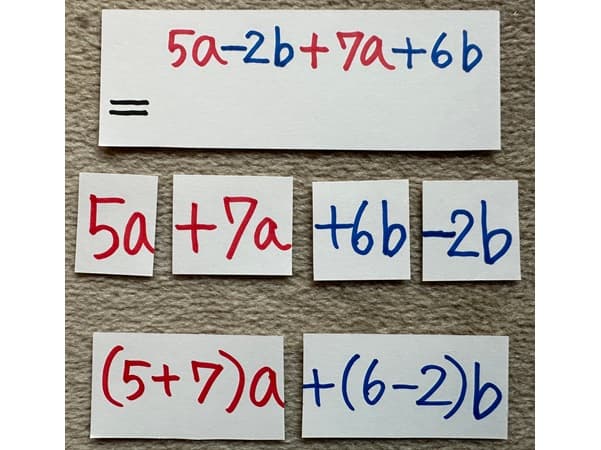 5a-2b+7a+6b
=
5a +7a +6b -2b
(5+7)a +(6-2)b